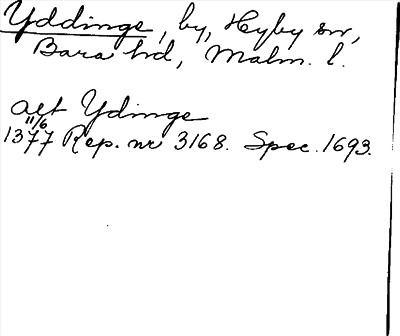 Yddinge, by, Hyby sn,
Bara hd, Malm. l.
aff Ydinge
11/6
1377 Rep. nr 3168. Spec. 1693.